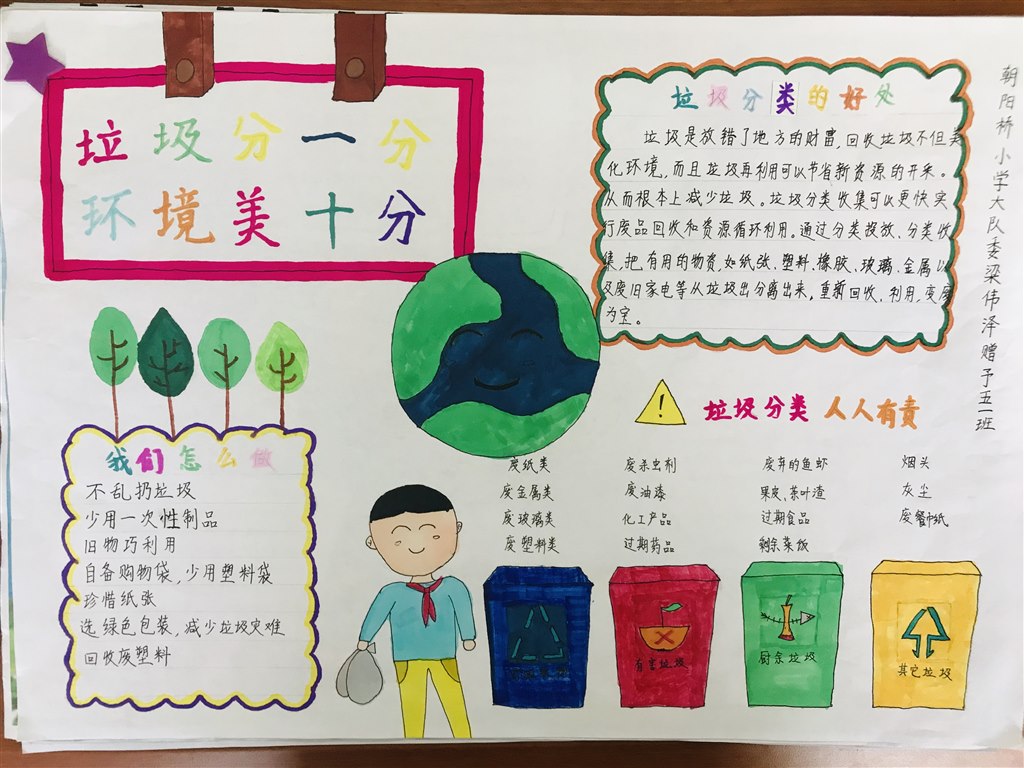 垃圾分一分
环境美十分
垃圾分类的好处
垃圾是放错了地方的财富,回收垃圾不但美
化环境,而且垃圾再利用可以节省新资源的开采。
从而根本上减少垃圾。垃圾分类收集可以更快实
行废品回收和资源循环利用。通过分类投放、分类收
集,把有用的物资,如纸张、塑料、橡胶、玻璃、金属以
及废旧家电等从垃圾出分离出来,重新回收、利用,变废
为宝。
朝阳桥小学大队委梁伟泽赠予五一班
垃圾分类 人人有责
我们怎么做
不乱扔垃圾
少用一次性制品
旧物巧利用
自备购物袋,少用塑料袋
珍惜纸张
选绿色包装,减少垃圾灾难
回收废塑料
废纸类
废金属类
废玻璃类
废塑料类
废杀虫剂
废油漆
化工产品
过期药品
废弃的鱼虾
果皮、茶叶渣
过期食品
剩余菜饭
烟头
灰尘
废餐巾纸
有害垃圾
厨余垃圾
其它垃圾